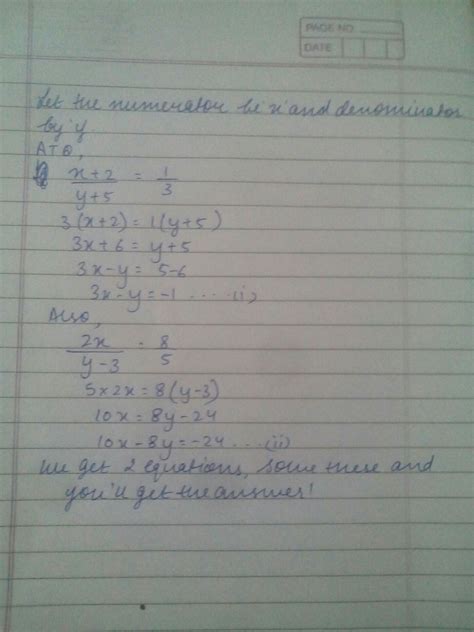 PAGE NO
DATE
Let the numerator be 'x' and denominator
by 'y
ATQ,
x+2 / y+5 = 1/3
3(x+2) = 1(y+5)
3x+6 = y+5
3x-y = 5-6
3x-y = -1 .... (i)
Also,
2x / y-3 = 8/5
5x2x = 8(y-3)
10x = 8y-24
10x-8y = -24 ... (ii)
We get 2 equations, some these and
you'll get the answer!